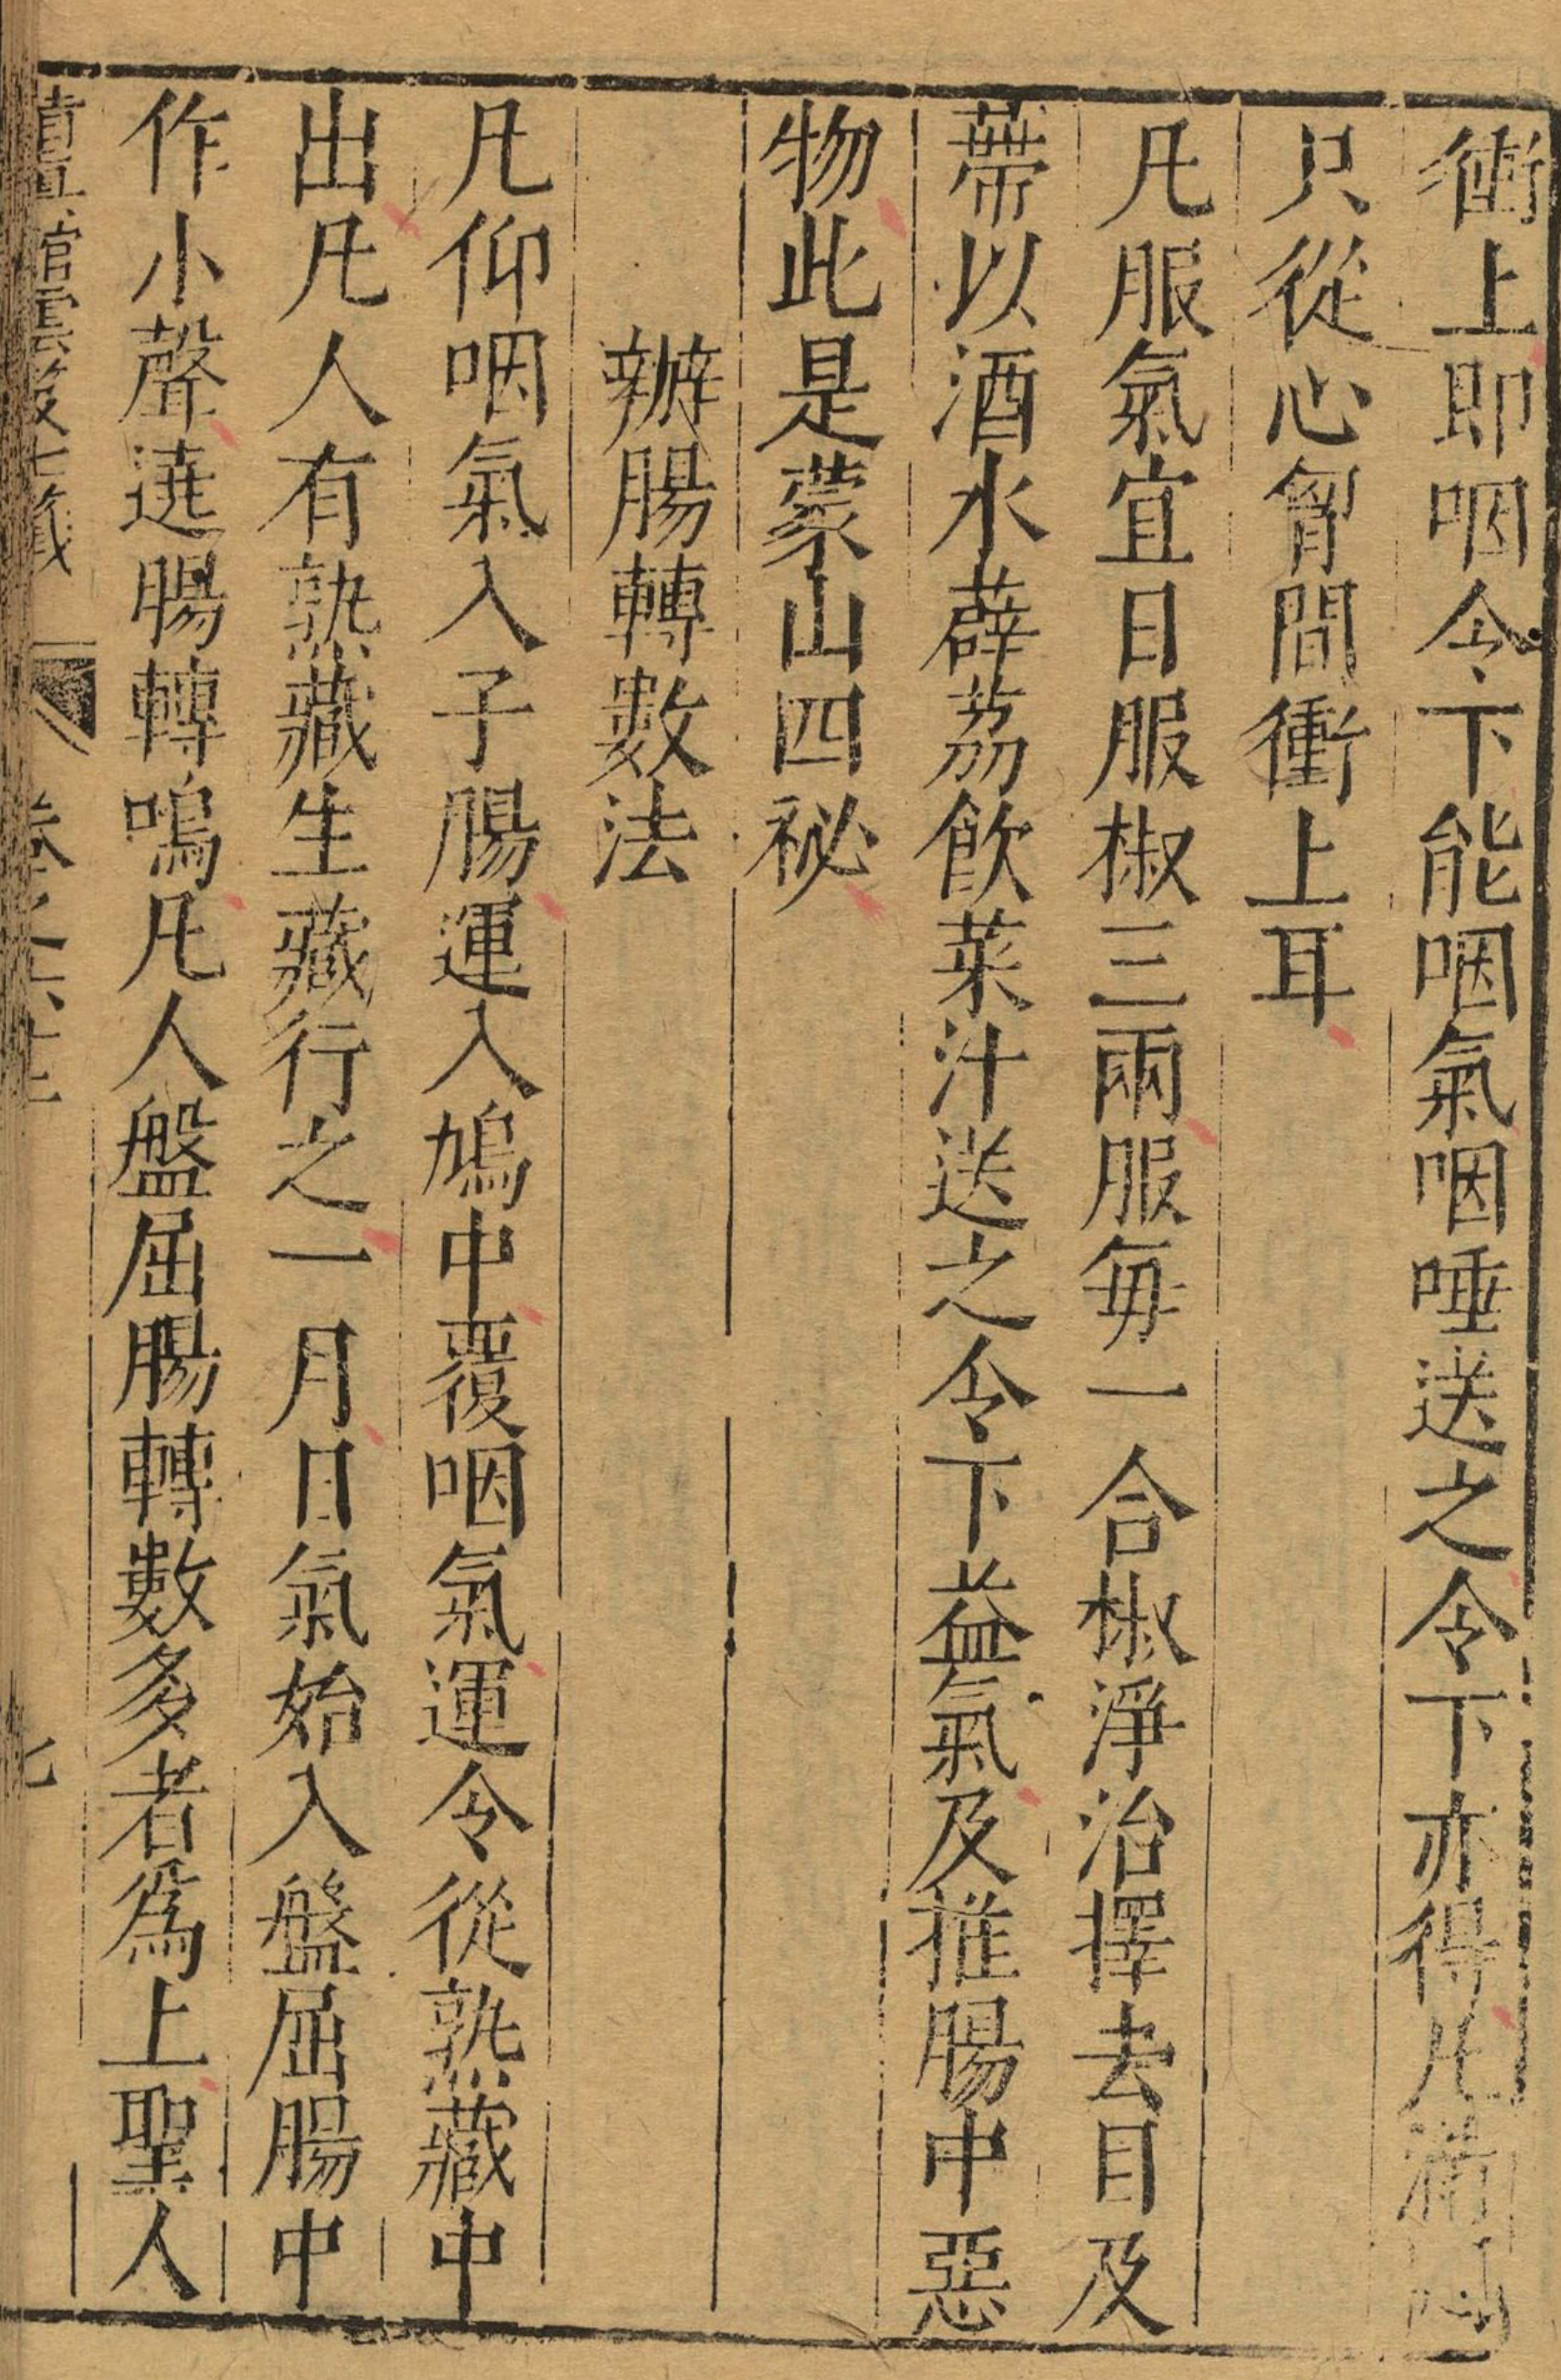 衝上即咽令下能咽氣咽唾送之令下亦得凡滿
只從心胷間衝上耳
凡服氣宜日服椒三兩服每一合椒淨治擇去目及
蔕以酒水薜荔飲菜汁送之令下益氣及推腸中惡
物此是蒙山四祕
辦腸轉數法
凡仰咽氣入子腸運入鳩中覆咽氣運令從熟藏中
出凡人有熟藏生藏行之一月日氣始入盤屈腸中
作小聲遶腸轉鳴凡人盤屈腸轉數多者爲上聖人
清真館雲笈七籤 卷之六十三